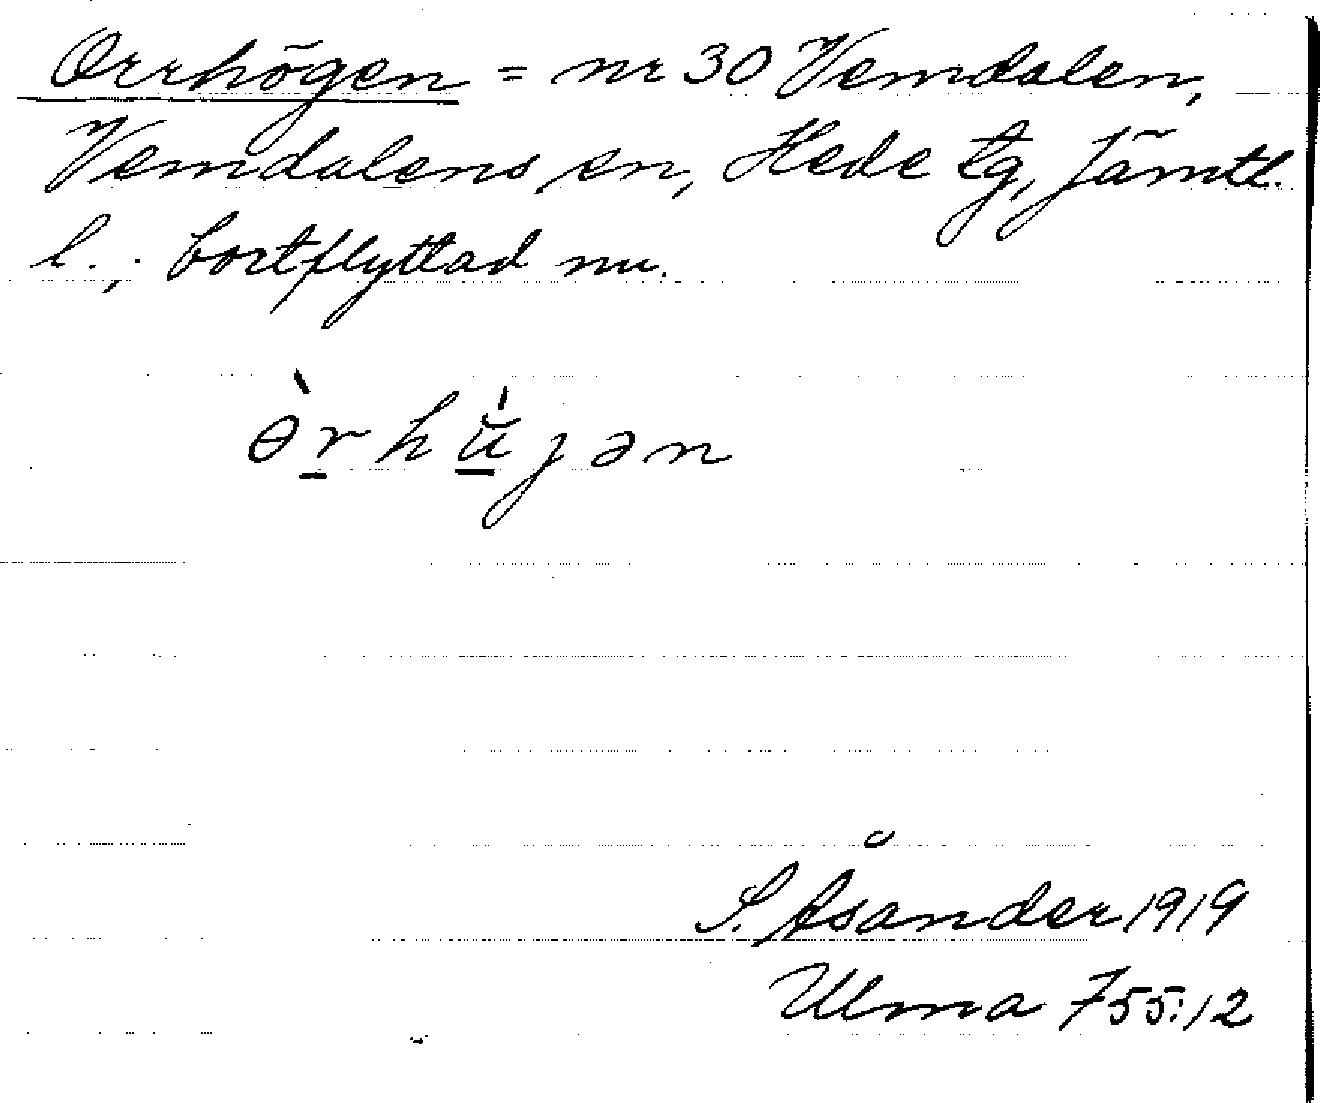 Orrhögen = nr 30 Vemdalen,
Vemdalens sn, Hede tg, Jämtl.
l., bortflyttad nu.
ɵ̀r̲hŭ̲́jən
S. Åsander 1919
Ulma 755:12